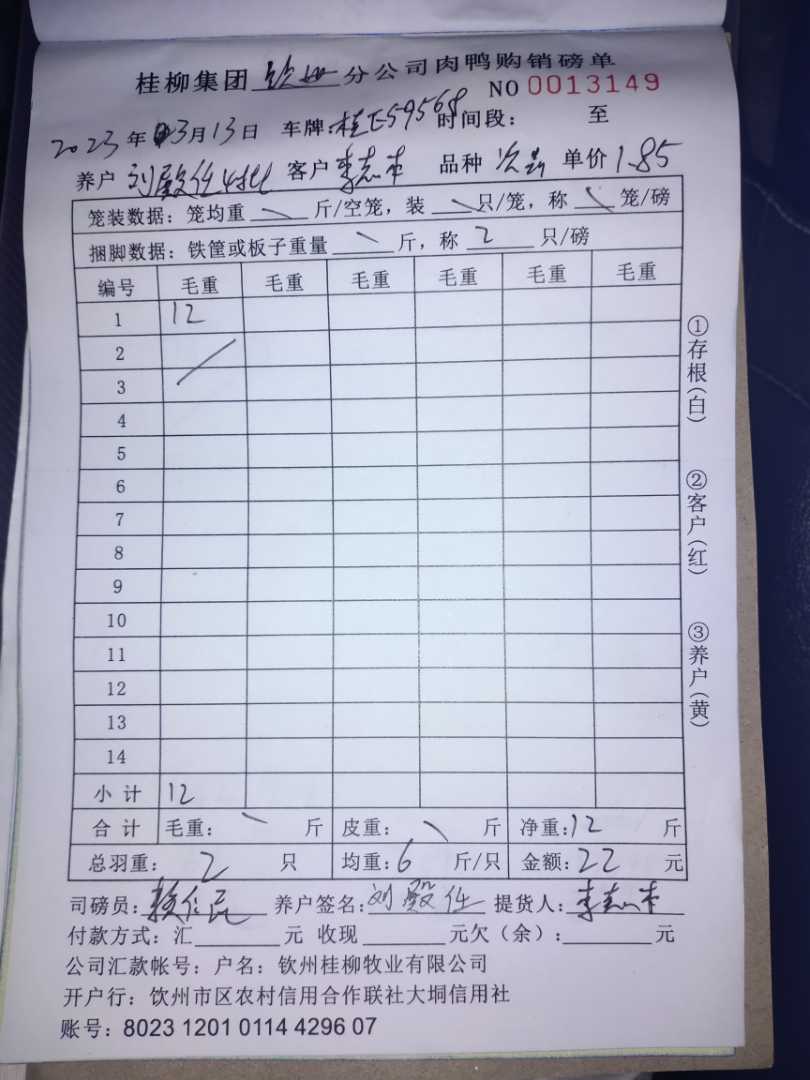 桂柳集团钦州分公司肉鸭购销磅单
NO 0013149
2023年03月13日 车牌:桂E59568 时间段: 至
养户 刘殿任 客户 李志本 品种 次品 单价 1.85
笼装数据：笼均重 斤/空笼，装 只/笼，称 笼/磅
捆脚数据：铁筐或板子重量 斤，称 2 只/磅
编号 毛重 毛重 毛重 毛重 毛重 毛重
1 12
2
3
4
5
6
7
8
9
10
11
12
13
14
小计 12
合计 毛重： 斤 皮重： 斤 净重:12 斤
总羽重： 2 只 均重:6 斤/只 金额:22 元
司磅员: 养户签名:刘殿任 提货人:李志本
付款方式：汇 元 收现 元欠（余）: 元
公司汇款帐号：户名：钦州桂柳牧业有限公司
开户行：饮州市区农村信用合作联社大垌信用社
账号：8023 1201 0114 4296 07
①存根(白)
②客户(红)
③养户(黄)